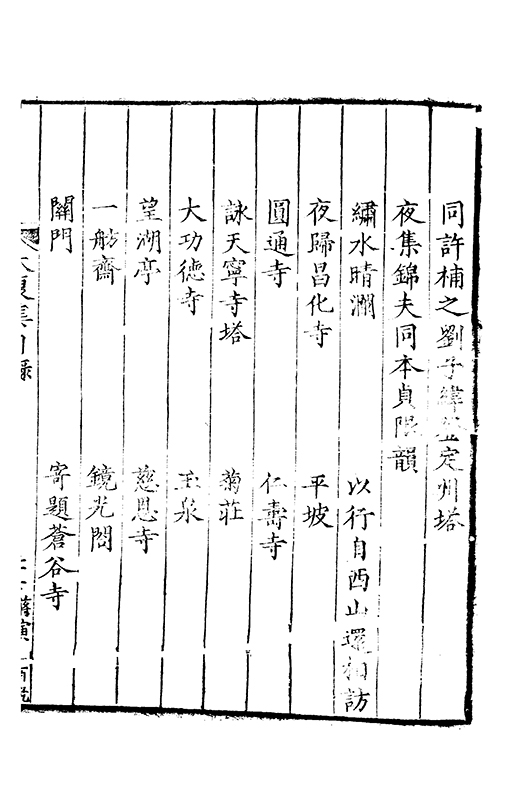 同許補之劉子緯登定州塔
夜集錦夫同本貞限韻
繡水晴瀾　以行自西山還相訪
夜歸昌化寺　平坡
圓通寺　仁壽寺
詠天寧寺塔　菊莊
大功德寺　玉泉
望湖亭　慈恩寺
一舫齋　鏡光閣
關門　寄題蒼谷寺
集目錄